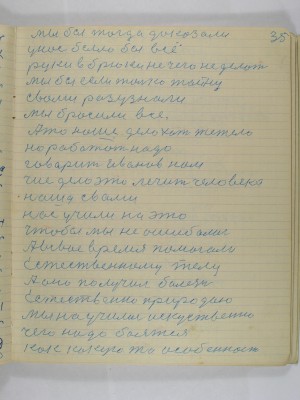 35
мы бы тогда доказали
у нас было бы всё
руки в брюки нечего не делат
мы бы сели только тайну
своли разузнали
мы бросили все.
А то наше дело хот тежело
но работат надо
говарит Иванов нам
чие дело это лечит человека
наша с вами
нас учили на это
чтобы мы не ошибалис
А в вое время помогали
Естественному телу
А оно получил болезн
Естественно природаю
мы научилис искуственно
чего надо боятся
как какую то особенност